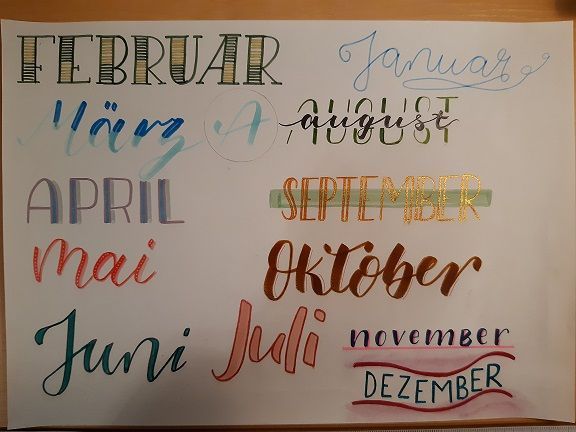 FEBRUAR Januar
März A AUGUST august
APRIL SEPTEMBER
mai Oktober
Juni Juli november
DEZEMBER